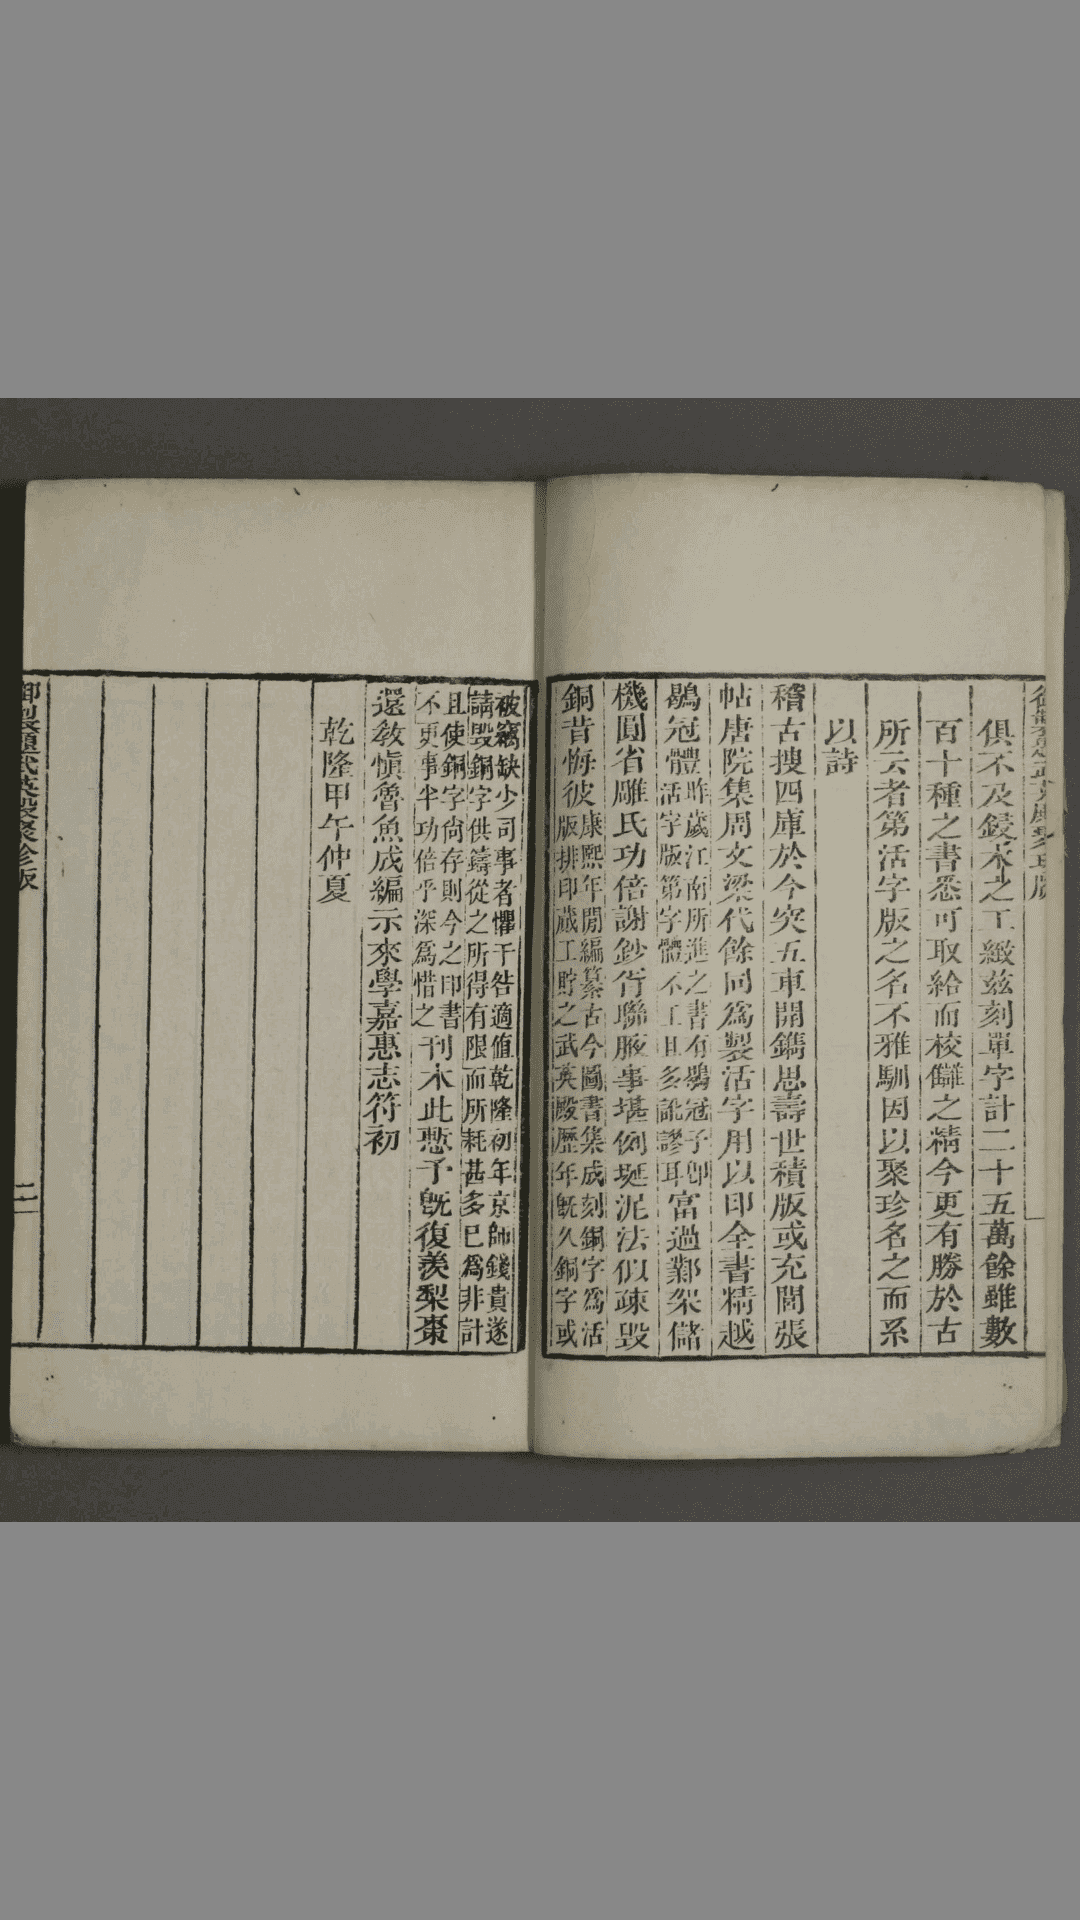 俱不及鋟木之工緻茲刻單字計二十五萬餘雖數
百十種之書悉可取給而校讎之精今更有勝於古
所云者第活字版之名不雅馴因以聚珍名之而系
以詩
稽古搜四庫於今突五車開鐫思壽世積版或充閭張
帖唐院集周文梁代餘同爲製活字用以印全書精越
鶡冠體昨歲江南所進之書有鶡冠子卽活字版第字體不工且多訛謬耳富過鄴架儲
機圓省雕氏功倍謝鈔胥聯腋事堪例埏泥法似疎毀
銅昔悔彼康熙年閒編纂古今圖書集成刻銅字爲活版排印蕆工貯之武英殿歷年旣久銅字或
被竊缺少司事者懼干咎適值乾隆初年京師錢貴遂請毀銅字供鑄從之所得有限而所耗甚多已爲非計
且使銅字尙存則今之印書不更事半功倍乎深爲惜之刊木此慙予旣復羨梨棗
還敎愼魯魚成編示來學嘉惠志符初
乾隆甲午仲夏
御製題武英殿聚珍版
二